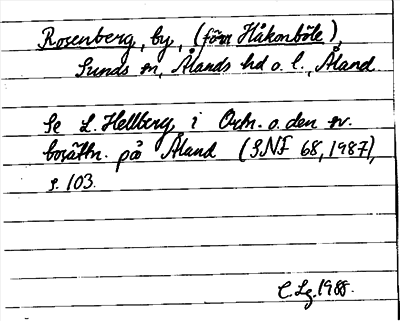 Rosenberg, by, (förr Håkonböle),
Sunds sn, Ålands hd o. l., Åland
Se L. Hellberg i Ortn. o. den sv.
bosättn. på Åland (SNF 68, 1987),
s. 103.
C. Lg. 1988.